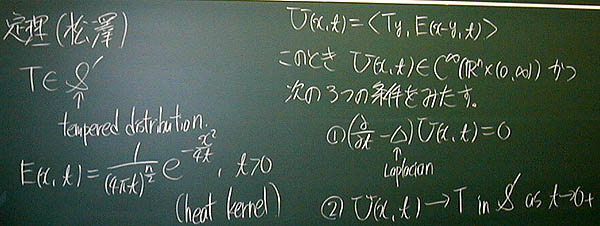 定理(松澤)
T∈S'
↑
tempered distribution.
E(x,t)=1/(4πt)^{n/2} e^{-x²/4t}, t>0
(heat kernel)
U(x,t)=<Ty, E(x-y,t)>
このとき U(x,t)∈C^∞(ℝⁿ×(0,∞)) かつ
次の3つの条件をみたす。
①(∂/∂t-△)U(x,t)=0
↑
Laplacian
②U(x,t)→T in S' as t→0+